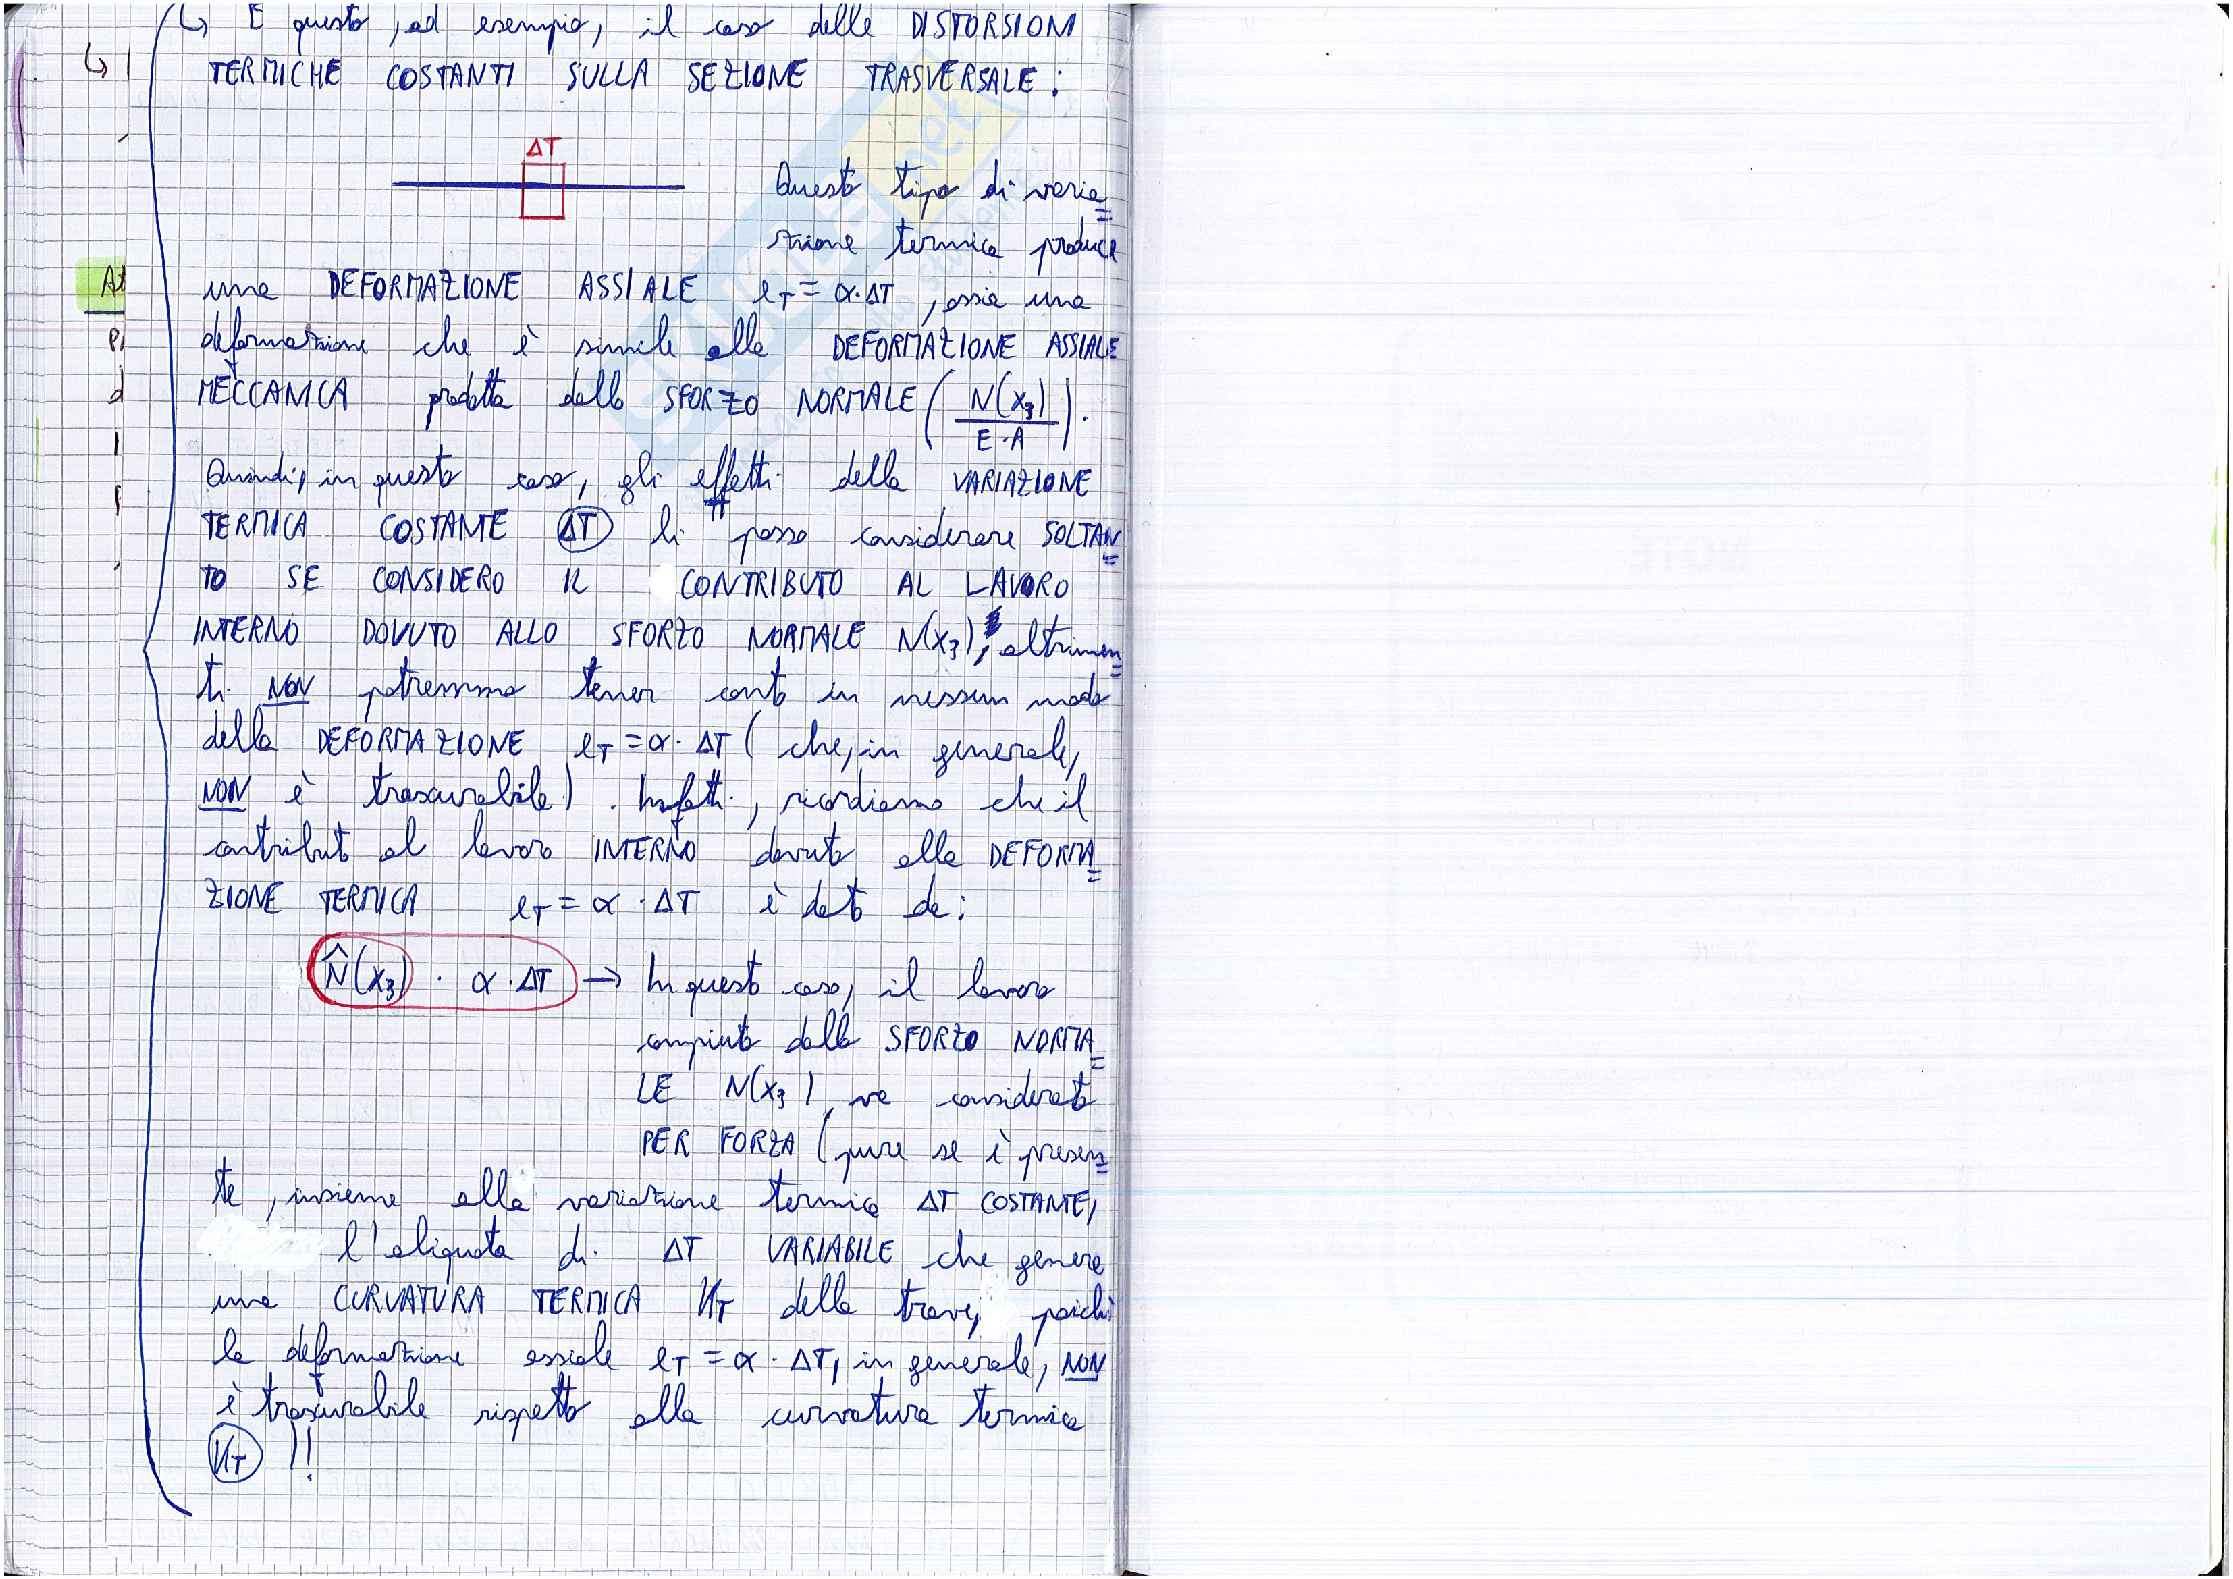 ↳ E questo, ad esempio, il caso delle DISTORSIONI
TERMICHE COSTANTI SULLA SEZIONE TRASVERSALE:
ΔT
Questo tipo di varia=
zione termica produce
una DEFORMAZIONE ASSIALE e_T = α·ΔT, ossia una
deformazione che è simile alla DEFORMAZIONE ASSIALE
MECCANICA prodotta dallo SFORZO NORMALE (N(x₃)/E·A).
Quindi, in questo caso, gli effetti della VARIAZIONE
TERMICA COSTANTE ΔT li posso considerare SOLTAN=
TO SE CONSIDERO IL CONTRIBUTO AL LAVORO
INTERNO DOVUTO ALLO SFORZO NORMALE N(x₃), altrimen=
ti NON potremmo tener conto in nessun modo
della DEFORMAZIONE e_T = α·ΔT (che, in generale,
NON è trascurabile). Infatti, ricordiamo che il
contributo al lavoro INTERNO dovuto alla DEFORMA=
ZIONE TERMICA e_T = α·ΔT è dato da:
N̂(x₃) · α·ΔT → In questo caso, il lavoro
compiuto dallo SFORZO NORMA=
LE N(x₃) va considerato
PER FORZA (pure se è presen=
te, insieme alla variazione termica ΔT COSTANTE,
l'aliquota di ΔT VARIABILE che genera
una CURVATURA TERMICA χ_T della trave, poiché
la deformazione assiale e_T = α·ΔT, in generale, NON
è trascurabile rispetto alla curvatura termica
χ_T)!!